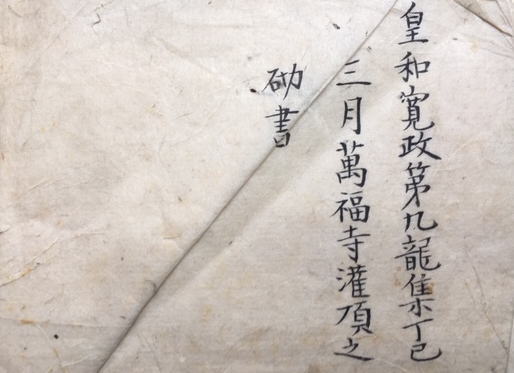 皇和寛政第九龍集丁巳
三月萬福寺灌頂之
砌書